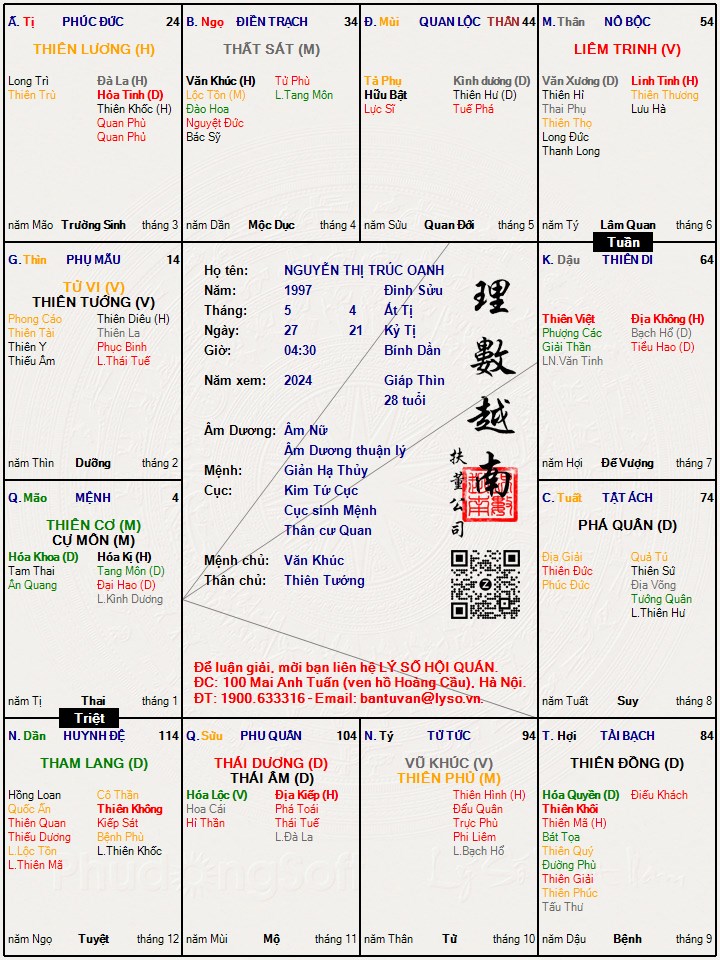 Ấ. Tị PHÚC ĐỨC 24
THIÊN LƯƠNG (H)
Long Trì
Thiên Trù
Đà La (H)
Hỏa Tinh (D)
Thiên Khốc (H)
Quan Phù
Quan Phủ
năm Mão Trường Sinh tháng 3
B. Ngọ ĐIỀN TRẠCH 34
THẤT SÁT (M)
Văn Khúc (H)
Lộc Tồn (M)
Đào Hoa
Nguyệt Đức
Bác Sỹ
Tử Phù
L.Tang Môn
năm Dần Mộc Dục tháng 4
Đ. Mùi QUAN LỘC THÂN 44
Tả Phụ
Hữu Bật
Lực Sĩ
Kình dương (D)
Thiên Hư (D)
Tuế Phá
năm Sửu Quan Đới tháng 5
M. Thân NÔ BỘC 54
LIÊM TRINH (V)
Văn Xương (D)
Thiên Hỉ
Thai Phụ
Thiên Thọ
Long Đức
Thanh Long
Linh Tinh (H)
Thiên Thương
Lưu Hà
năm Tý Lâm Quan tháng 6
Tuần
G. Thìn PHỤ MẪU 14
TỬ VI (V)
THIÊN TƯỚNG (V)
Phong Cáo
Thiên Tài
Thiên Y
Thiếu Âm
Thiên Diêu (H)
Thiên La
Phục Binh
L.Thái Tuế
năm Thìn Dưỡng tháng 2
Họ tên: NGUYỄN THỊ TRÚC OANH
Năm: 1997 Đinh Sửu
Tháng: 5 4 Ất Tị
Ngày: 27 21 Kỷ Tị
Giờ: 04:30 Bính Dần
Năm xem: 2024 Giáp Thìn
28 tuổi
Âm Dương: Âm Nữ
Âm Dương thuận lý
Mệnh: Giản Hạ Thủy
Cục: Kim Tứ Cục
Cục sinh Mệnh
Thân cư Quan
Mệnh chủ: Văn Khúc
Thân chủ: Thiên Tướng
理數越南
扶董公司
Để luận giải, mời bạn liên hệ LÝ SỐ HỘI QUÁN.
ĐC: 100 Mai Anh Tuấn (ven hồ Hoàng Cầu), Hà Nội.
ĐT: 1900.633316 - Email: bantuvan@lyso.vn.
K. Dậu THIÊN DI 64
Thiên Việt
Phượng Các
Giải Thần
LN.Văn Tinh
Địa Không (H)
Bạch Hổ (D)
Tiểu Hao (D)
năm Hợi Đế Vượng tháng 7
Q. Mão MỆNH 4
THIÊN CƠ (M)
CỰ MÔN (M)
Hóa Khoa (D)
Tam Thai
Ân Quang
Hóa Kị (H)
Tang Môn (D)
Đại Hao (D)
L.Kình Dương
năm Tị Thai tháng 1
Triệt
C. Tuất TẬT ÁCH 74
PHÁ QUÂN (D)
Địa Giải
Thiên Đức
Phúc Đức
Quả Tú
Thiên Sứ
Địa Võng
Tướng Quân
L.Thiên Hư
năm Tuất Suy tháng 8
N. Dần HUYNH ĐỆ 114
THAM LANG (D)
Hồng Loan
Quốc Ấn
Thiên Quan
Thiếu Dương
L.Lộc Tồn
L.Thiên Mã
Cô Thần
Thiên Không
Kiếp Sát
Bệnh Phù
L.Thiên Khốc
năm Ngọ Tuyệt tháng 12
Q. Sửu PHU QUÂN 104
THÁI DƯƠNG (D)
THÁI ÂM (D)
Hóa Lộc (V)
Hoa Cái
Hỉ Thần
Địa Kiếp (H)
Phá Toái
Thái Tuế
L.Đà La
năm Mùi Mộ tháng 11
N. Tý TỬ TỨC 94
VŨ KHÚC (V)
THIÊN PHỦ (M)
Thiên Hình (H)
Đẩu Quân
Trực Phù
Phi Liêm
L.Bạch Hổ
năm Thân Tử tháng 10
T. Hợi TÀI BẠCH 84
THIÊN ĐỒNG (D)
Hóa Quyền (D)
Thiên Khôi
Thiên Mã (H)
Bát Tọa
Thiên Quý
Đường Phù
Thiên Giải
Thiên Phúc
Tấu Thư
Điếu Khách
năm Dậu Bệnh tháng 9